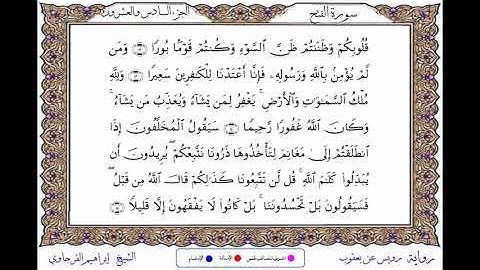 سورة الفتح
الجزء السادس والعشرون
قُلُوبِكُمْ وَظَنَنتُمْ ظَنَّ ٱلسَّوْءِ وَكُنتُمْ قَوْمًۢا بُورًا ۝ وَمَن
لَّمْ يُؤْمِنۢ بِٱللَّهِ وَرَسُولِهِۦ فَإِنَّآ أَعْتَدْنَا لِلْكَٰفِرِينَ سَعِيرًا ۝ وَلِلَّهِ
مُلْكُ ٱلسَّمَٰوَٰتِ وَٱلْأَرْضِ ۚ يَغْفِرُ لِمَن يَشَآءُ وَيُعَذِّبُ مَن يَشَآءُ ۚ
وَكَانَ ٱللَّهُ غَفُورًا رَّحِيمًا ۝ سَيَقُولُ ٱلْمُخَلَّفُونَ إِذَا
ٱنطَلَقْتُمْ إِلَىٰ مَغَانِمَ لِتَأْخُذُوهَا ذَرُونَا نَتَّبِعْكُمْ ۖ يُرِيدُونَ أَن
يُبَدِّلُوا۟ كَلَٰمَ ٱللَّهِ ۚ قُل لَّن تَتَّبِعُونَا كَذَٰلِكُمْ قَالَ ٱللَّهُ مِن قَبْلُ ۖ
فَسَيَقُولُونَ بَلْ تَحْسُدُونَنَا ۚ بَلْ كَانُوا۟ لَا يَفْقَهُونَ إِلَّا قَلِيلًا
رواية رويس عن يعقوب
الإمالة
الإدغام
الشيخ إبراهيم الفرجاوي